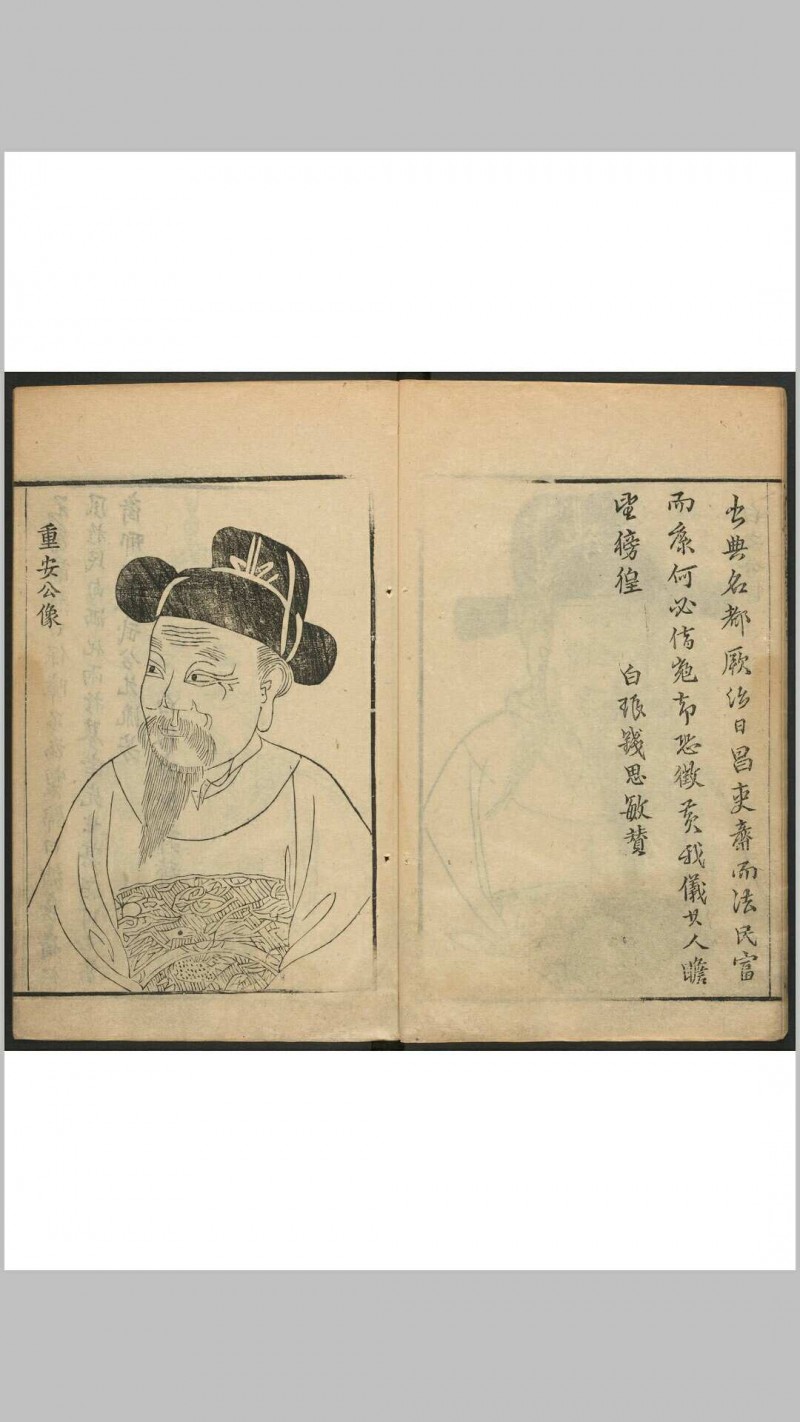 出典名都厥治日昌吏齋而法民富
而康何必借寇却恐徵黃我儀其人瞻
望徬徨
白琅錢思敏贊
重安公像